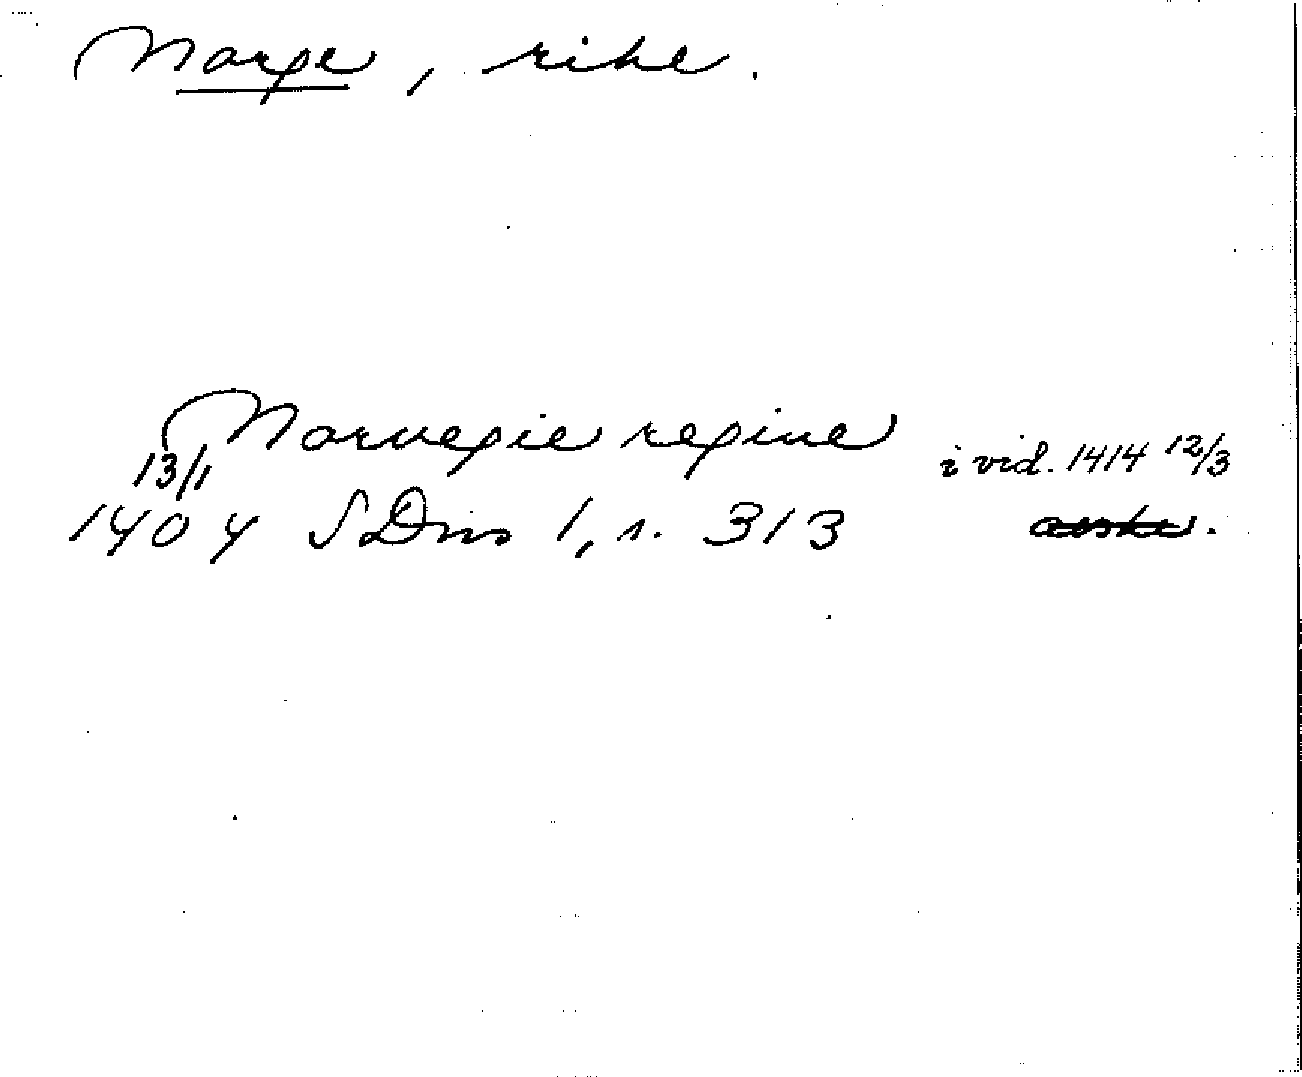 Norge, rike.
Norvegie regine i vid. 1414 12/3
13/1
1404 SDns 1, s. 313 avskr.